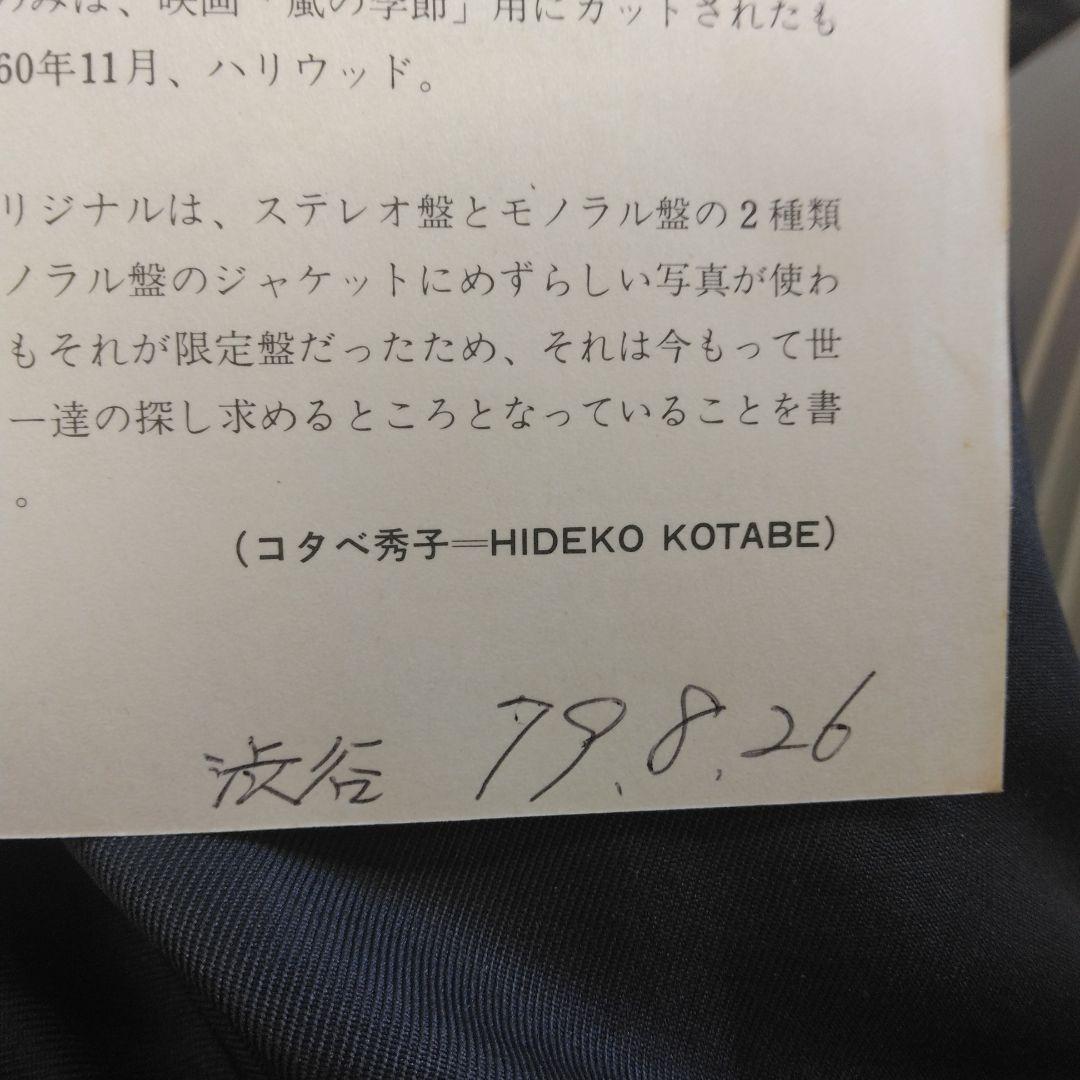 のみは、映画「嵐の季節」用にカットされたも
60年11月、ハリウッド。
リジナルは、ステレオ盤とモノラル盤の2種類
ノラル盤のジャケットにめずらしい写真が使わ
もそれが限定盤だったため、それは今もって世
ー達の探し求めるところとなっていることを書
。
(コタベ秀子=HIDEKO KOTABE)
渋谷 79.8.26